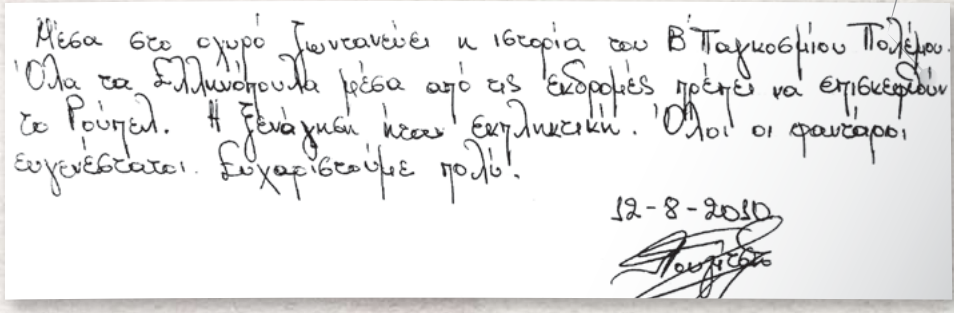 Μέσα στο οχυρό ζωντανεύει η ιστορία του Β' Παγκοσμίου Πολέμου.
Όλα τα Ελληνόπουλα μέσα από τις εκδρομές πρέπει να επισκεφθούν
το Ρούπελ. Η ξενάγηση ήταν εκπληκτική. Όλοι οι φαντάροι
ευγενέστατοι. Ευχαριστούμε πολύ.
12-8-2010